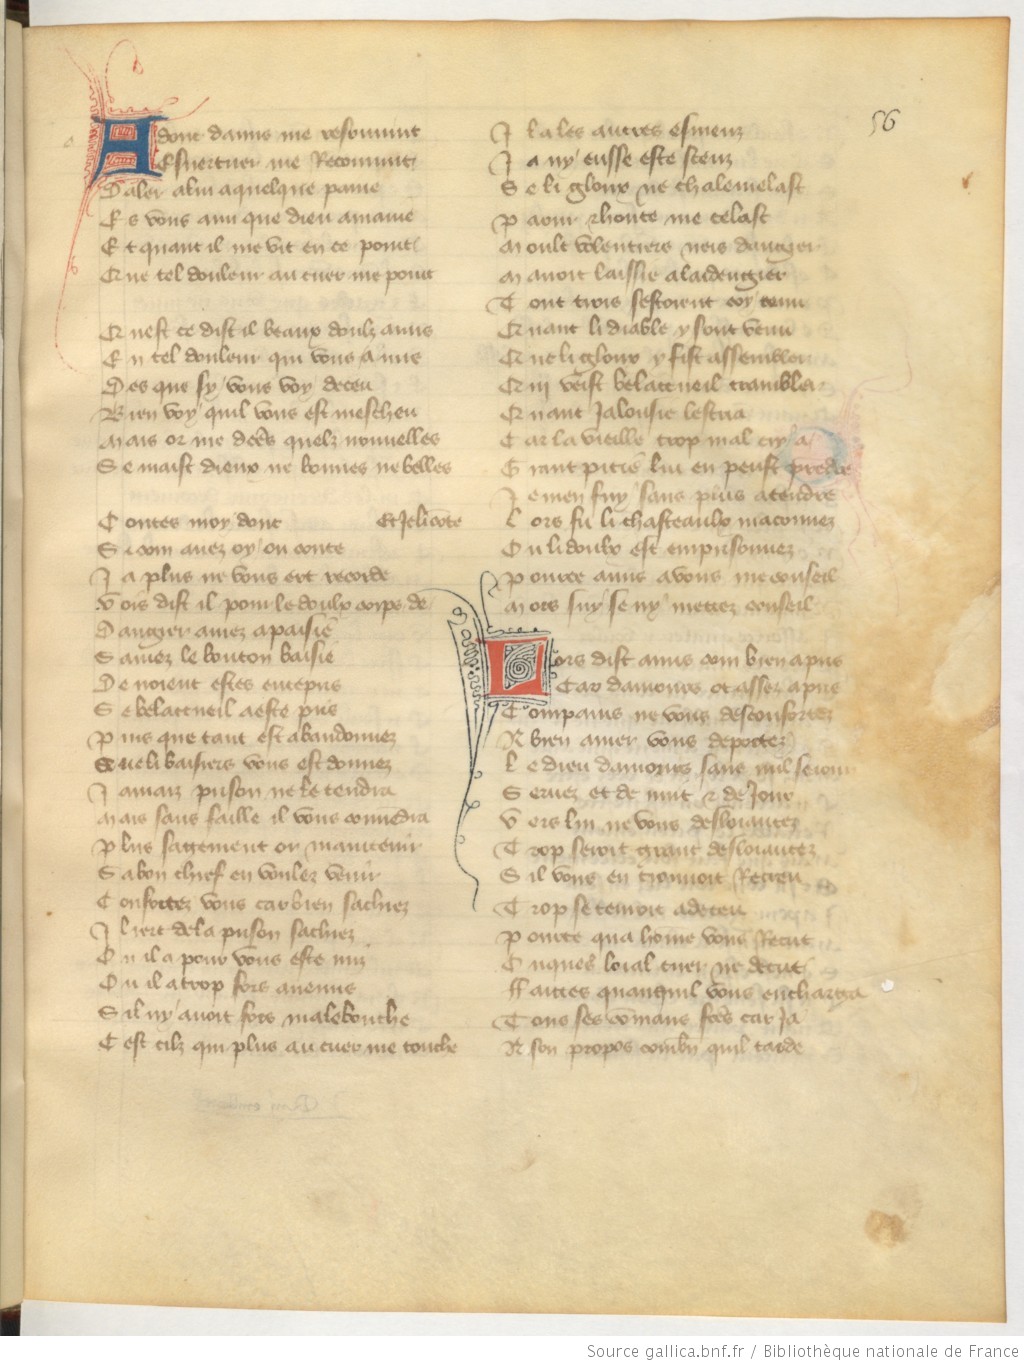 56
Adont damis me resouvint
Esvertuer me Reconvint
Daler a lui a quelque paine
Es vous ami que dieu amaine
Et quant il me vit en ce point
Que tel douleur au cuer me point
Quest ce dist il beaux doulz amis
En tel douleur qui vous a mis
Des que sy vous voy deceu
Bien voy quil vous est mescheu
Mais or me dctes quelz nouvelles
Se maist dieux ne bonnes ne belles
Contes moy dont et Je li conte
Si com avez oy ou conte
Ja plus ne vous ert recorde
Vois dist il pour le doulx corps de
Dangier aviez apaisie
Saviez le bouton baisie
De noient estes entrepris
Se belacueil a este pris
Puis que tant est abandonnez
Que li baisiers vous est donnez
Jamaiz prison ne le tendra
Mais sans faille il vous convendra
Plus sagement or maintenir
Sa bon chief en voulez venir
Confortez vous car bien sachiez
Il iert de la prison sachiez
Ou il a pour vous este mis
Ou il a trop fors anemis
Sil ny avoit fors malebouche
Cest cilz qui plus au cuer me touche
Il a les autres esmeuz
Ja ny eusse este sceuz
Se li gloux ne chalemelast
Paour & honte me celast
Moult volentiers neis dangier
Mavoit laissie a laidengier
Tout trois sestoient coy tenu
Quant li diable y sont venu
Que li gloux y fist assembler
Qui veist belacueil trambler
Quant Jalousie lescria
Car la vieille trop mal cry a
Grant pitie lui en peust prendre
Je men fuy sans plus atendre
Lors fu li chasteaulx maconnez
Ou li doulx est emprisonnez
Pource amis a vous me conseil
Mors suy se ny mettez conseil
Lors dist amis com bien apris
Car damours ot assez apris
Compains ne vous desconfortez
En bien amer vous deportez
Le dieu damours sans nul seiour
Servez et de nuit & de Jour
Vers lui ne vous desloiautez
Trop seroit grant desloiautez
Sil vous en trouvoit Recreu
Trop se tenroit a deceu
Pource qua home vous Recut
Onques loial cuer ne decut
Faictes quanquil vous enchargia
Tous ses comans fctes car Ja
En son propos combn quil tarde